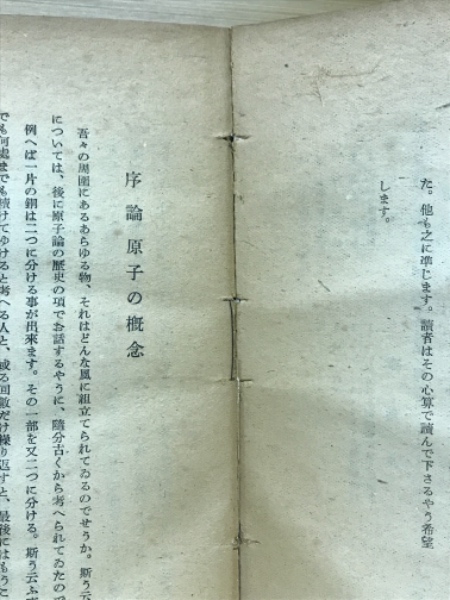 た。他も之に準じます。讀者はその心算で讀んで下さるやう希望
します。
序論 原子の概念
吾々の周圍にあるあらゆる物、それはどんな風に組立てられてゐるのでせうか。斯う云
については、後に原子論の歴史の項でお話するやうに、隨分古くから考へられてゐたので
例へば一片の銅は二つに分ける事が出來ます。その一部を又二つに分ける。斯う云ふ
でも何處までも續けてゆけると考へる人と、或る回數だけ繰り返すと、最後にはもうこ